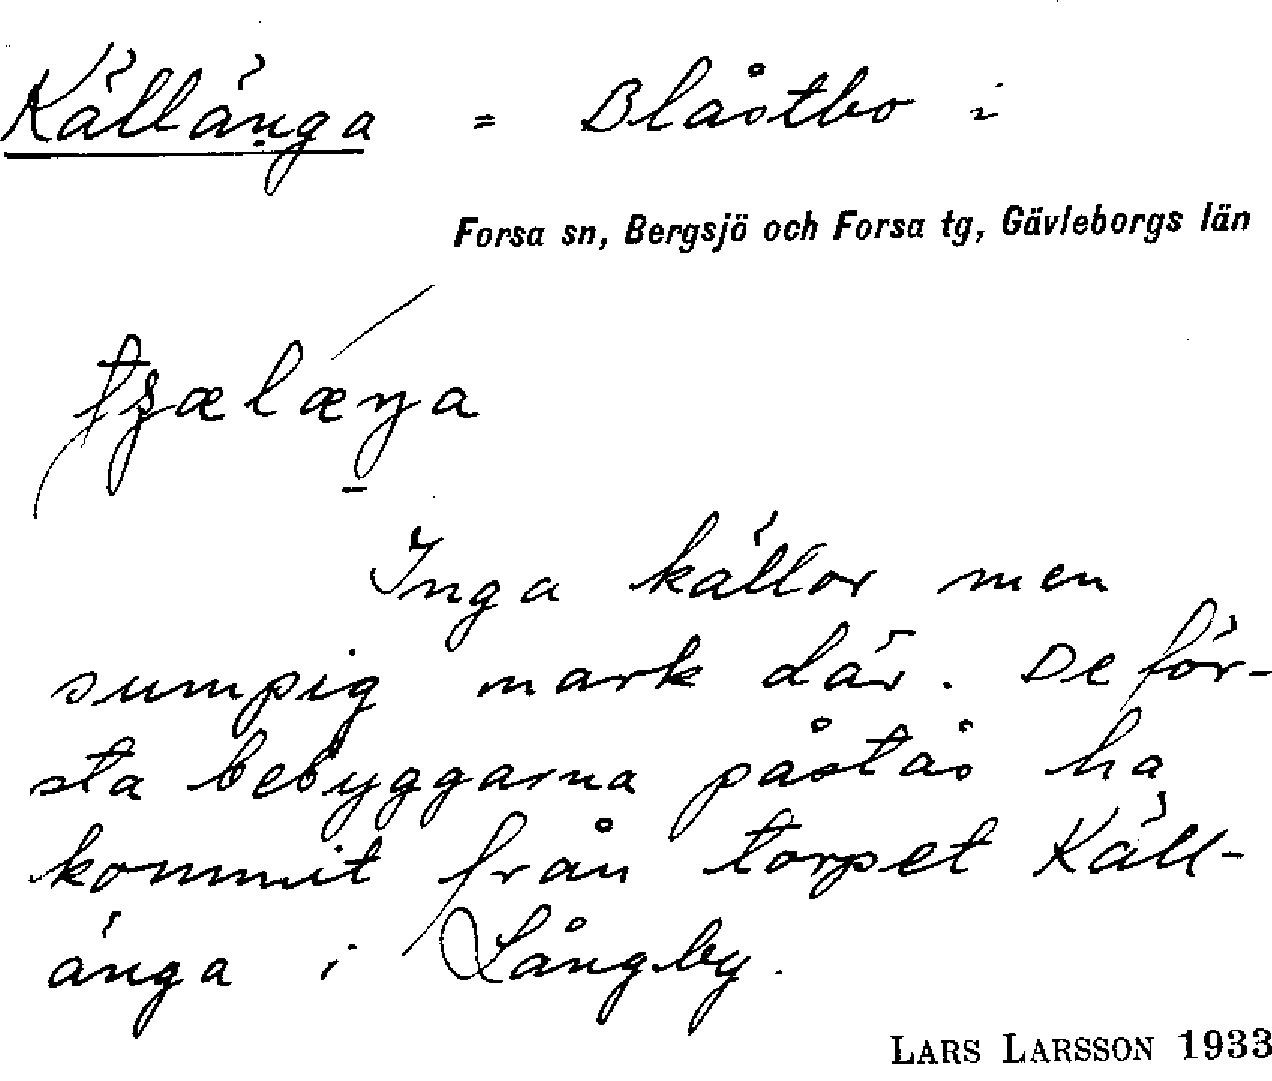 Källänga = Blåstbo i
Forsa sn, Bergsjö och Forsa tg, Gävleborgs län
Inga källor men
sumpig mark där. De för-
sta bebyggarna påstås ha
kommit från torpet Käll-
änga i Långby.
LARS LARSSON 1933